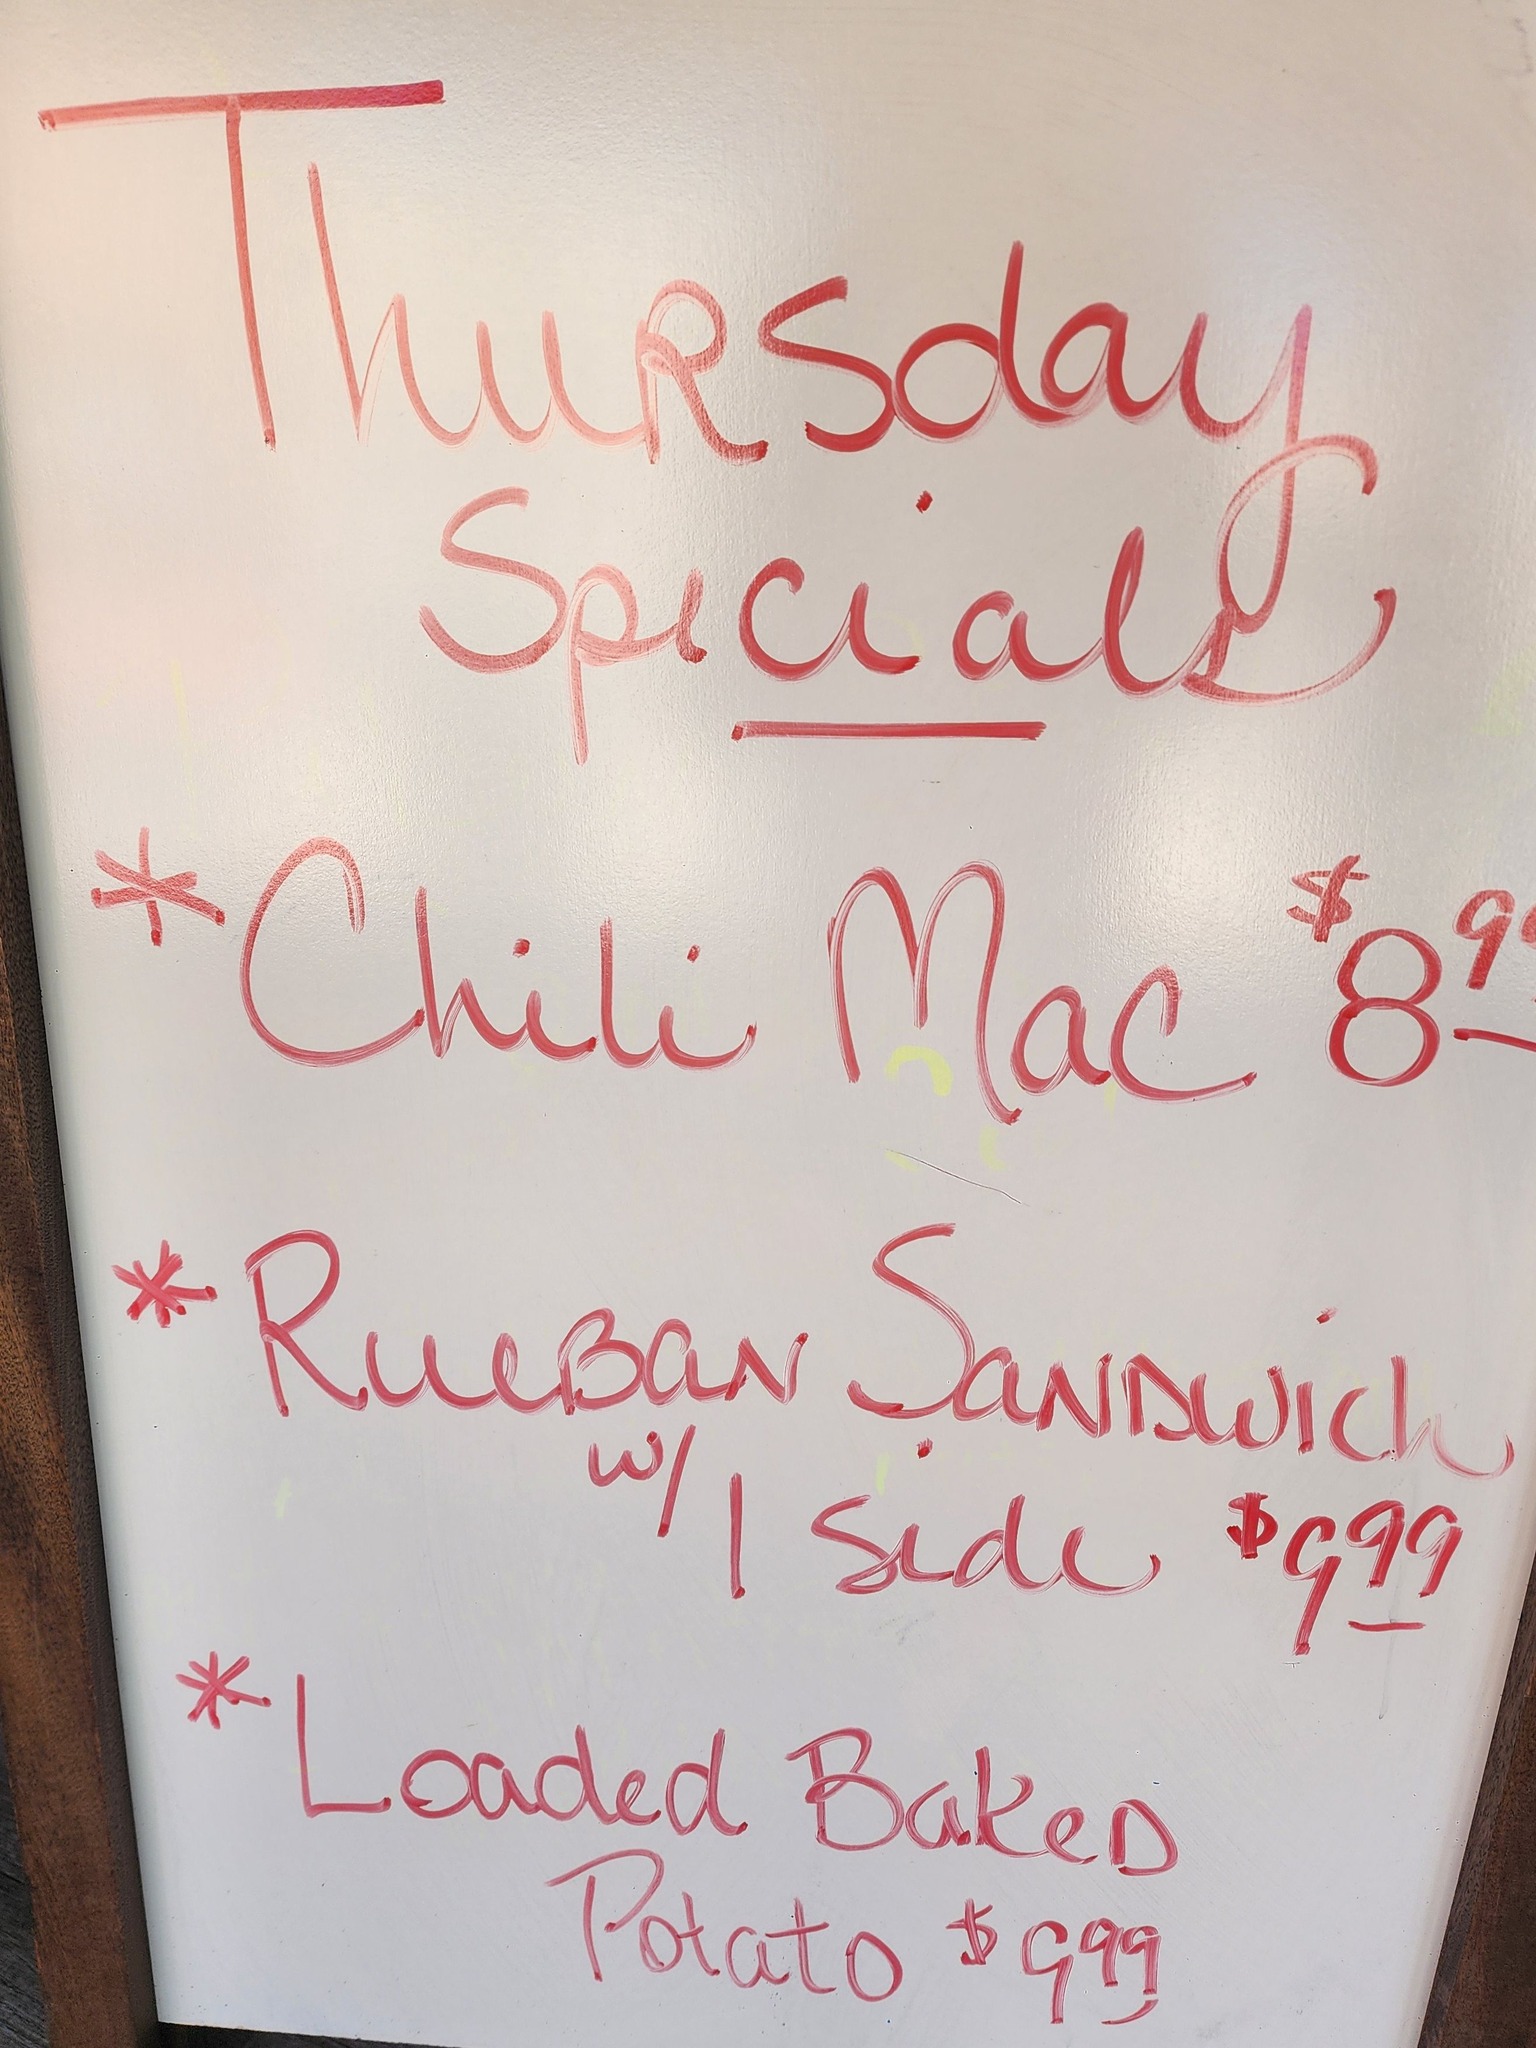 Thursday
Specials
* Chili Mac $8.99
* Rueban Sandwich
w/ 1 side $9.99
* Loaded Baked
Potato $9.99